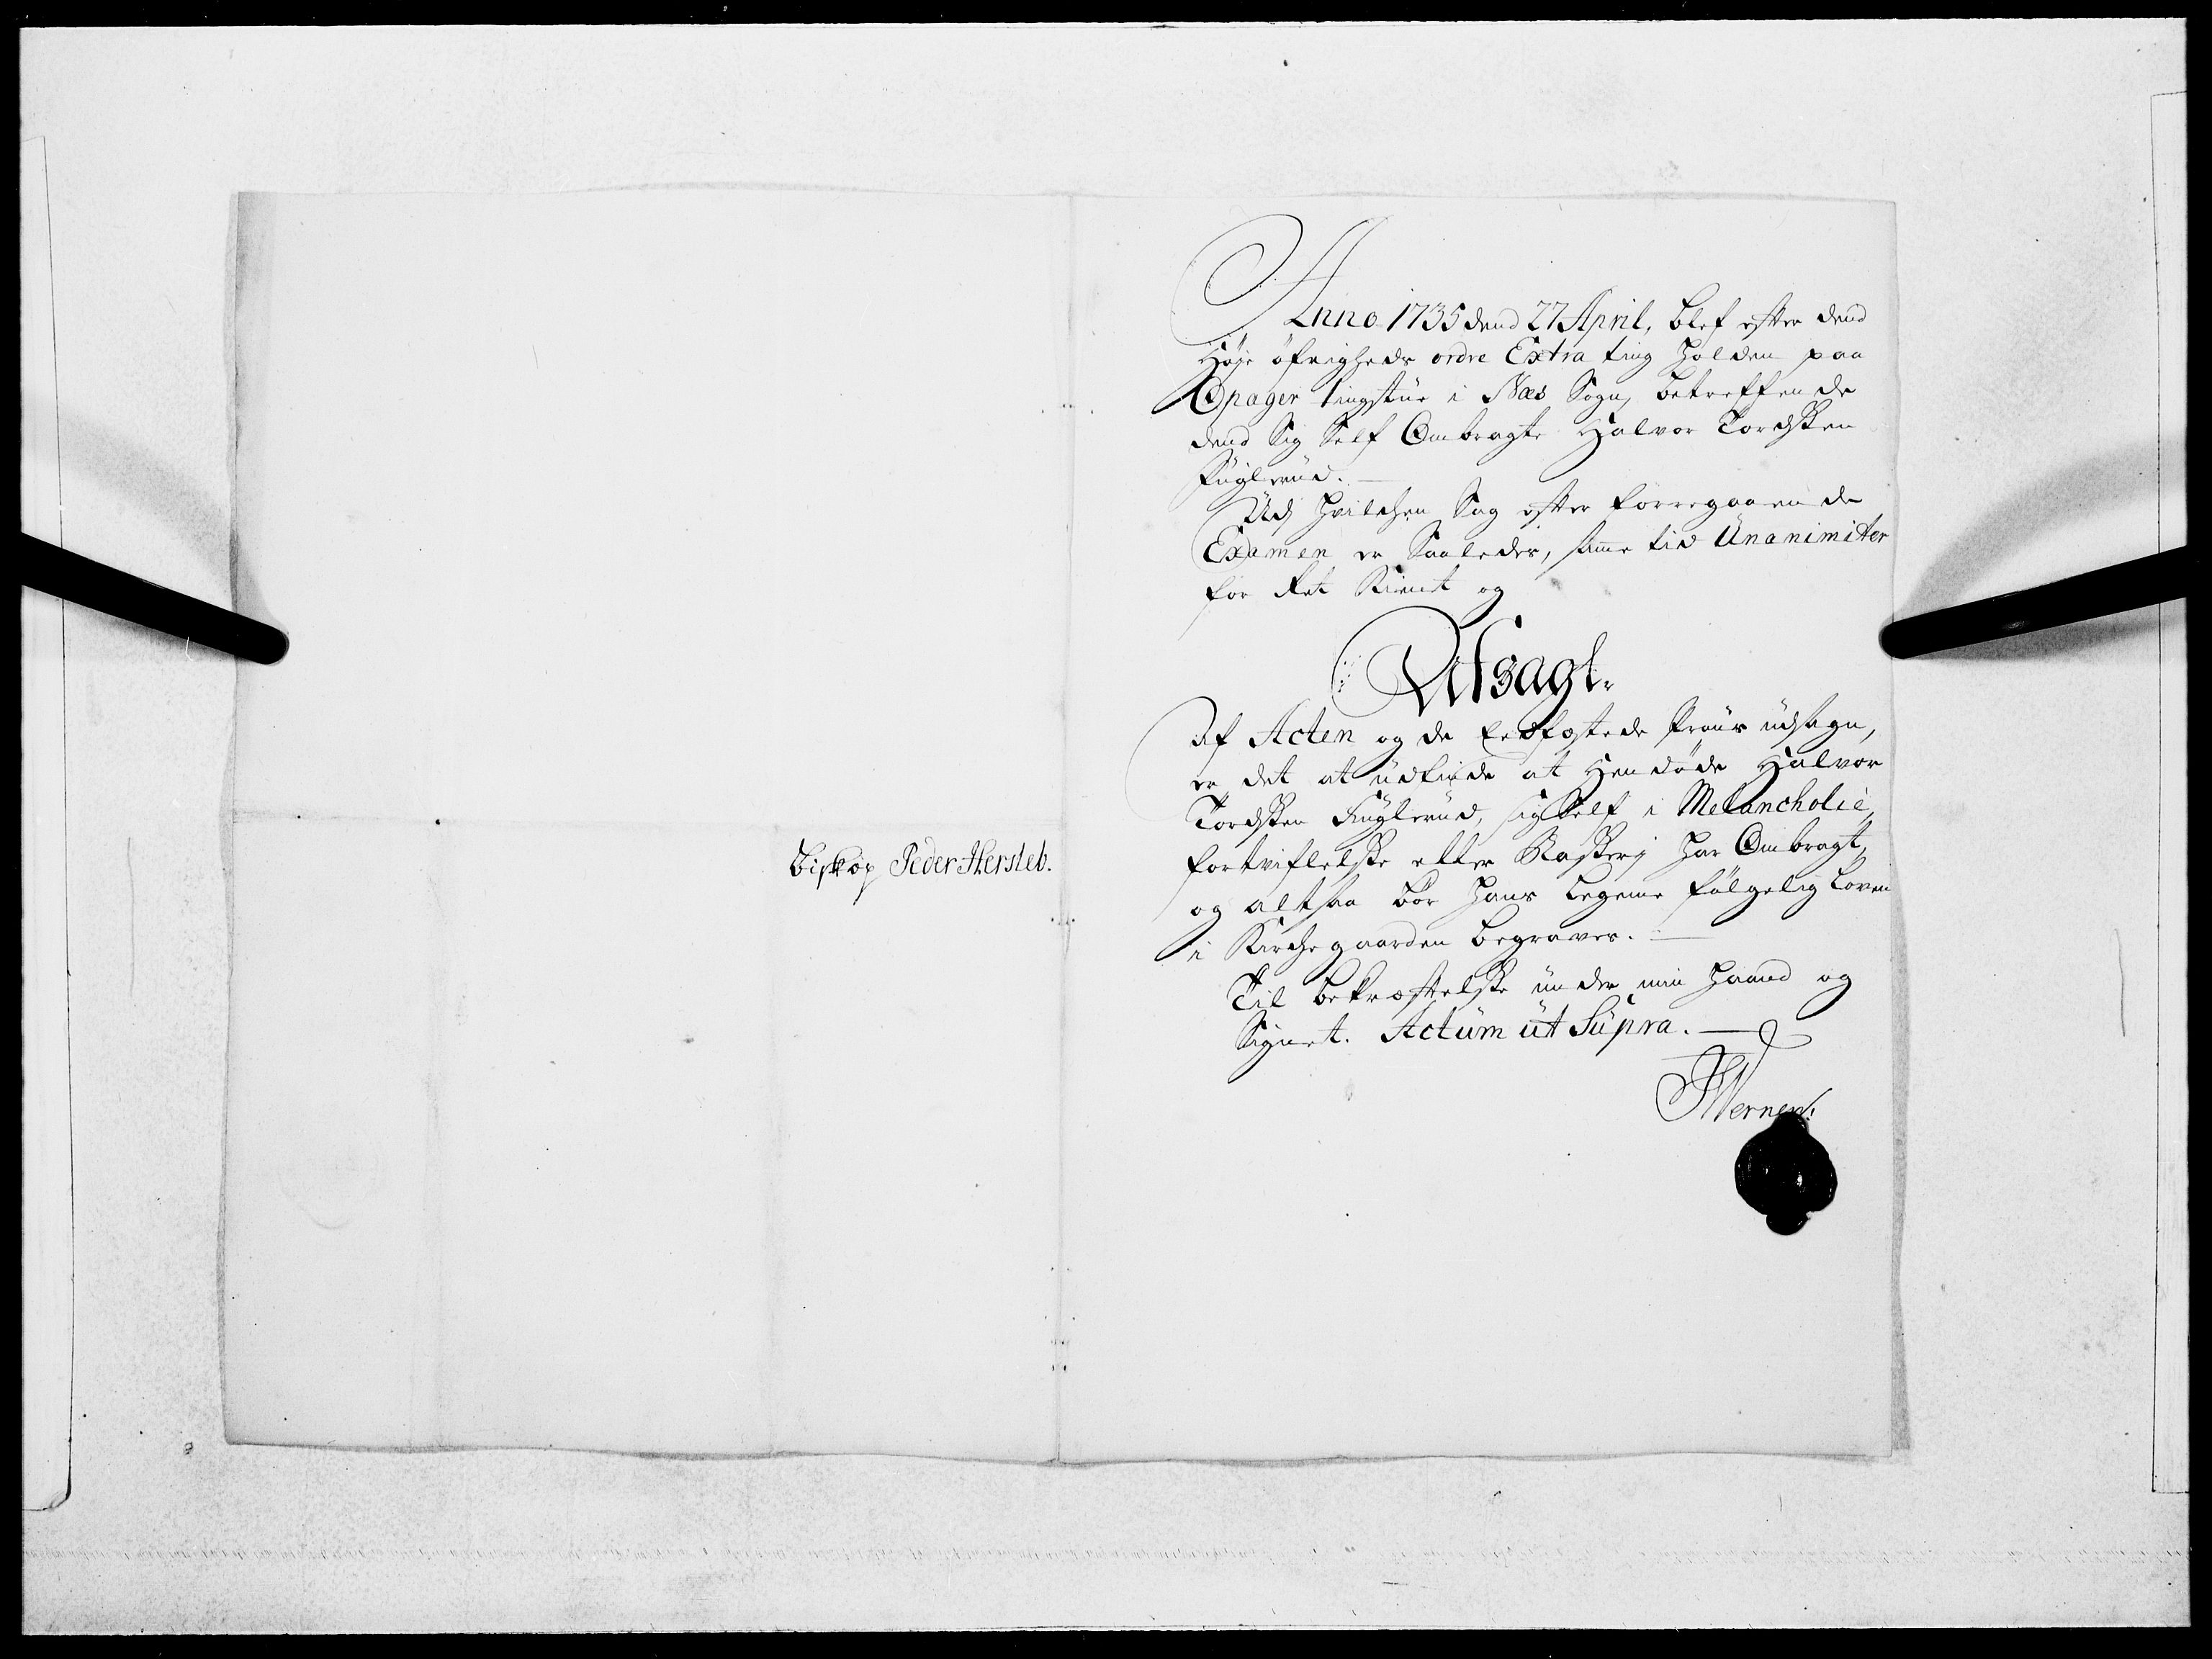 Biskop Peder Hersleb.
Anno 1735 dend 27 April, blef efter dend
Høje øfrigheds ordre Extra ting holden paa
Opager tingstue i Næs Sogn, betreffende
dend Sig Self Ombragte Halvor Tordssen
Fuglerud.
Udj hvilchen Sag efter forregaaende
Examen er Saaledes, samme tid Unanimiter
for Ret Kiendt og
Afsagt.
Af Acten og de Eedfæstede Prouvs udsagn,
er det at udfinde at Hendøde Halvor
Tordssen Fuglerud, sig Self i Melancholie,
fortviflelsse eller Raserj har Ombragt,
og altsaa bør hans Legeme følgelig Loven
i Kirchegaarden begraves.
Til bekræftelsse under min haand og
Signet. Actum ut Supra.
Werner: